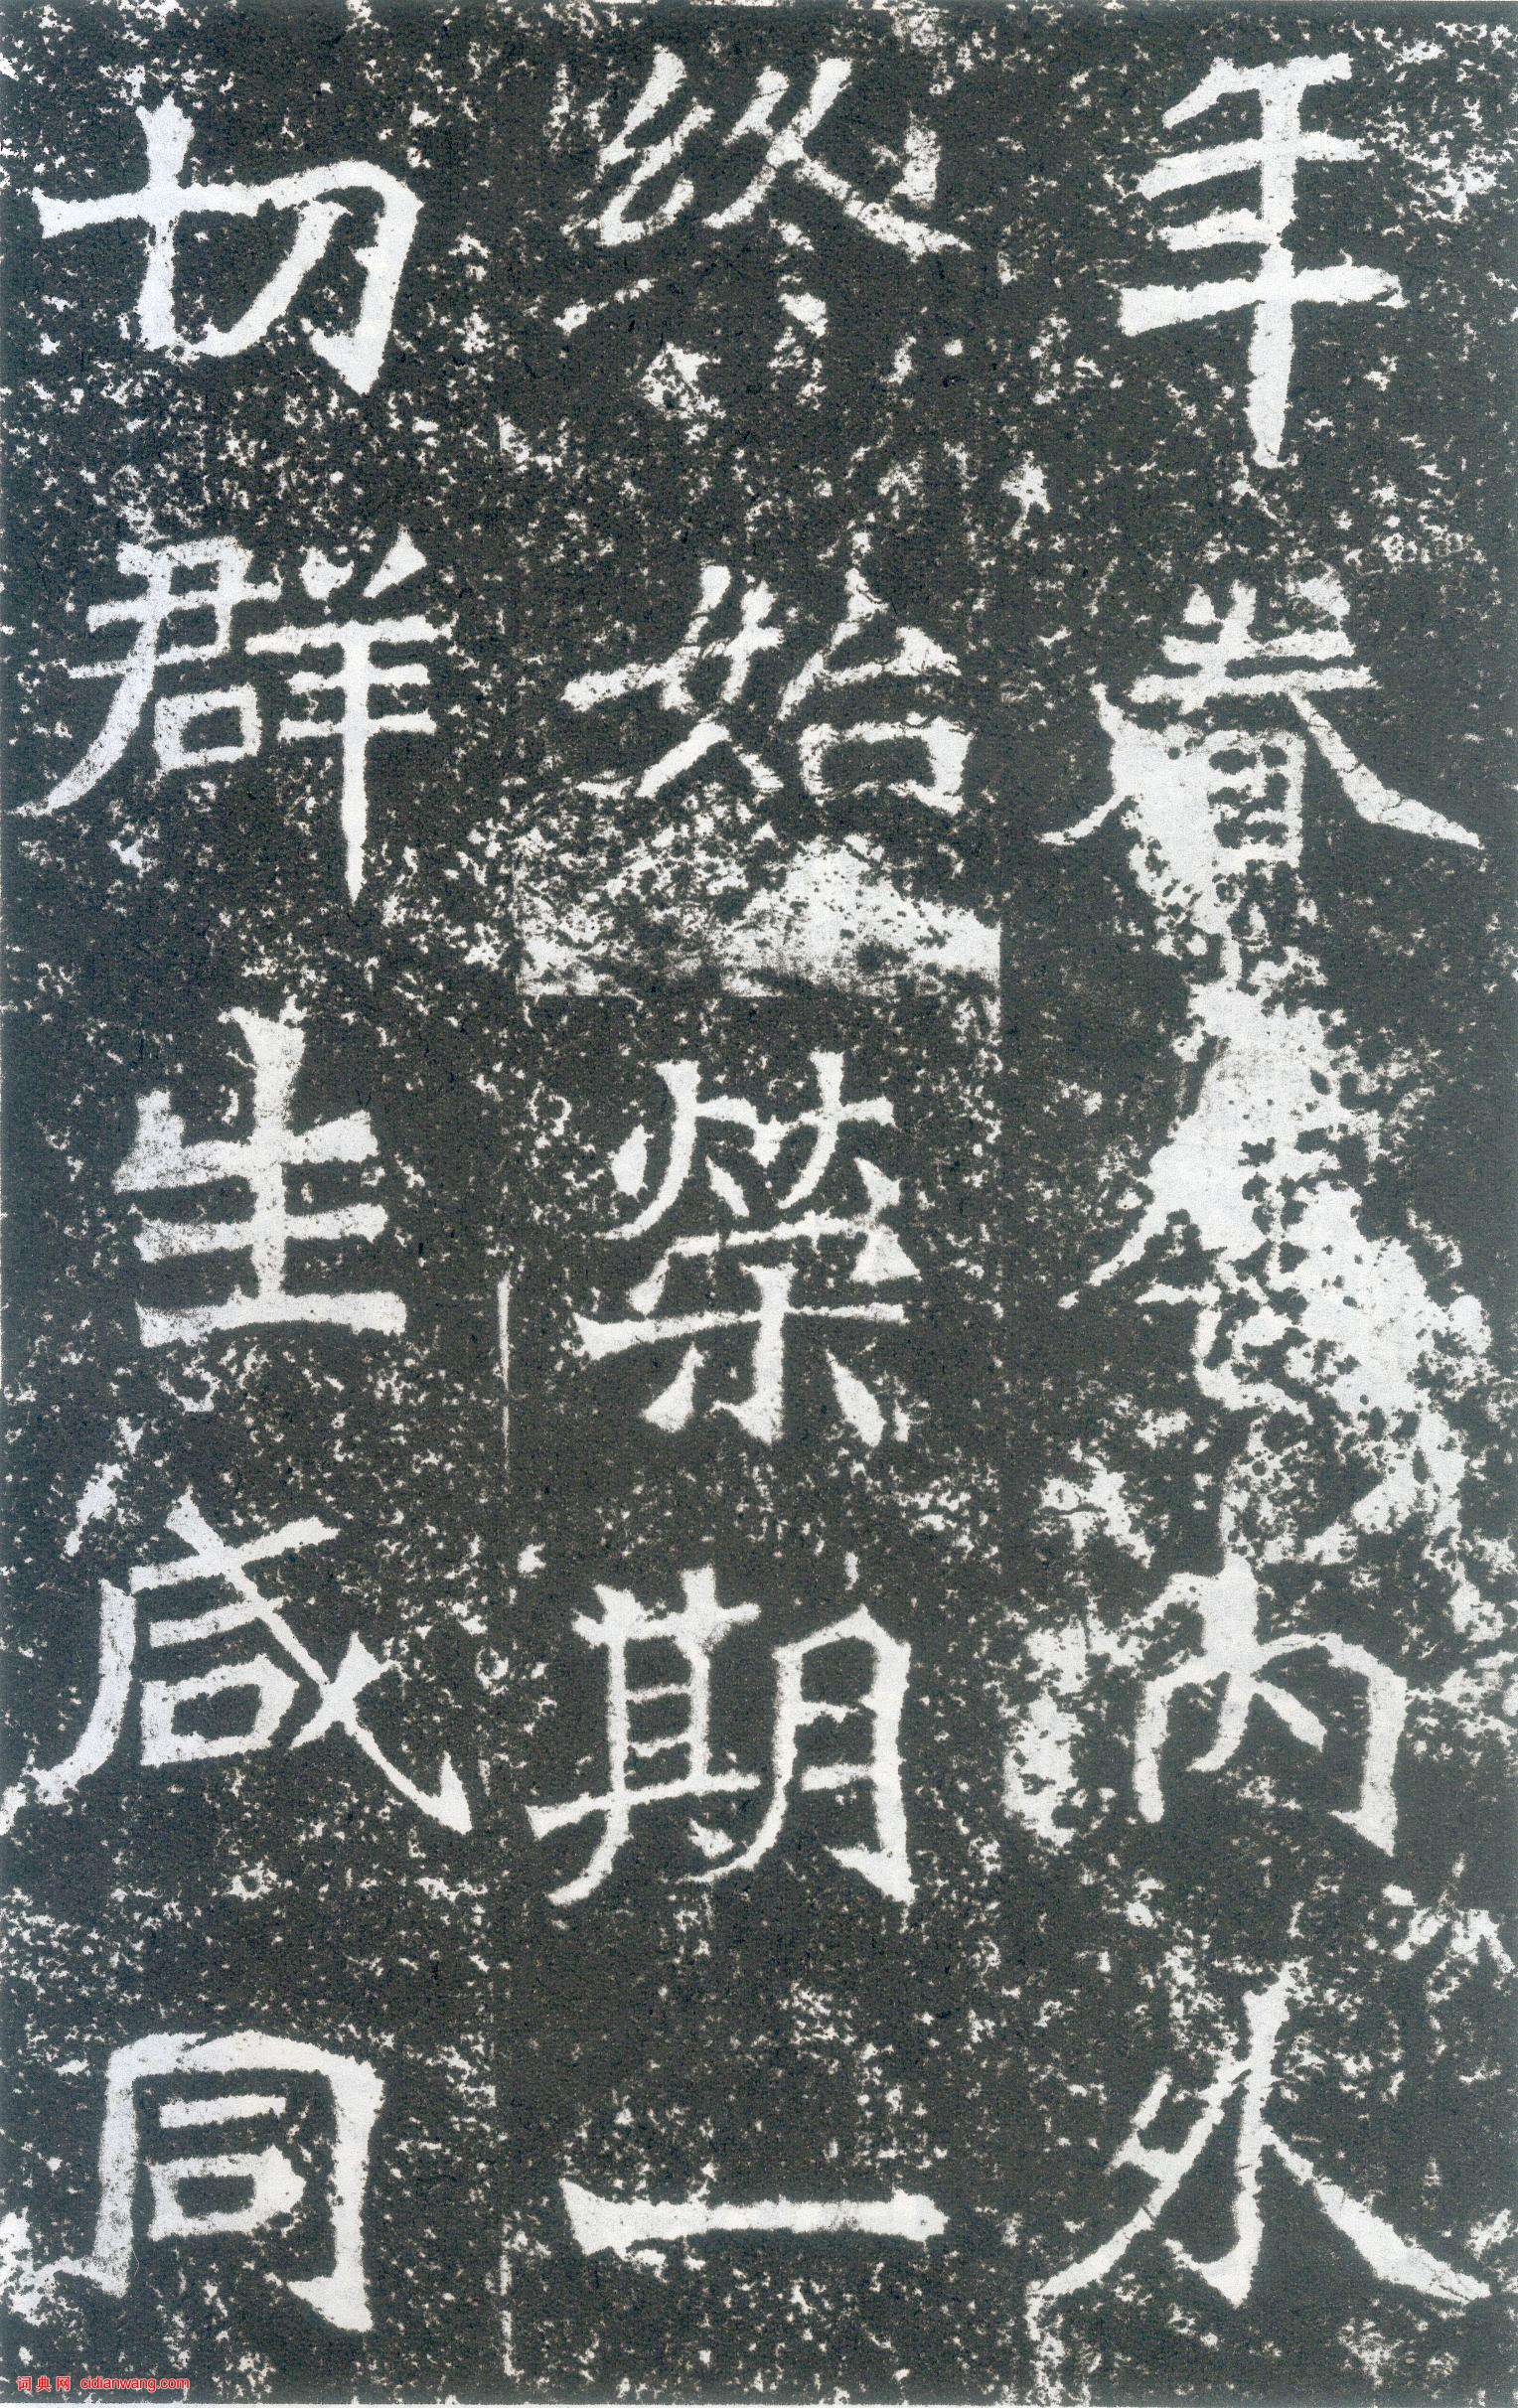 年眷內外
終始榮期一
切群生咸同
词典网 cidianwang.com